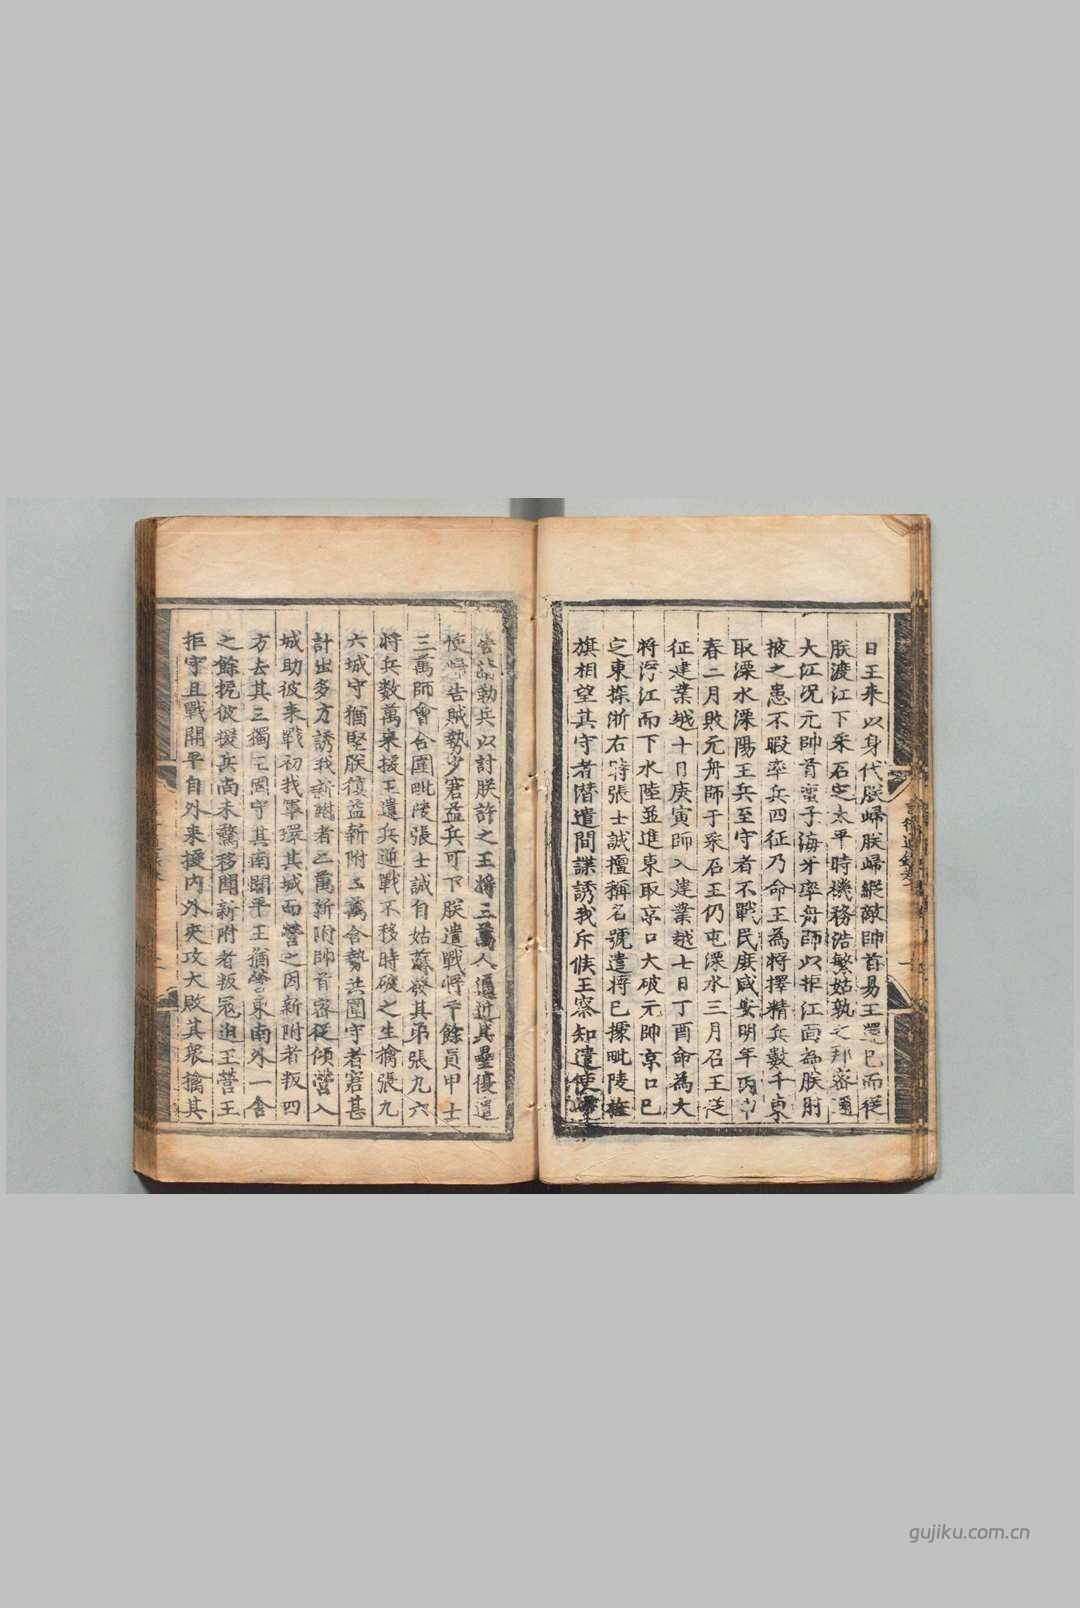 日王來以身代朕歸朕歸縱敵帥首易王還已而從
朕渡江下采石定太平時機務浩繁姑孰之邦密邇
大江況元帥首蛮子海牙率舟師以拒江面為朕肘
掖之患不暇率兵四征乃命王為將擇精兵數千東
取溧水溧陽王兵至守者不戰民庶咸安明年丙申
春二月敗元舟師于采石王仍屯溧水三月召王從
征建業越十日庚寅師入建業越七日丁酉命為大
將浮江而下水陸並進東取京口大破元帥京口已
定東探浙右時張士誠擅稱名號遣將已據毗陵旌
旗相望其守者潜遣間諜誘我斥候王察知遣使
告請勒兵以討朕許之王將三萬人逼近其壘復遣
使歸告賊勢少窘益兵可下朕遣戰將千餘員甲士
三萬師會合圍毗陵張士誠自姑蘇發其弟張九六
將兵数萬來援王遣兵逆戰不移時破之生擒張九
六城守猶堅朕復益新附二萬合勢共圍守者窘甚
計出多方誘我新附者二萬新附帥首密從傾營入
城助彼來戰初我軍環其城而營之因新附者叛四
方去其三獨王固守其南開平王猶營東南外一舍
之餘挠彼援兵尚未驚移聞新附者叛冦迫王營王
拒守且戰開平自外來援内外夾攻大敗其衆擒其